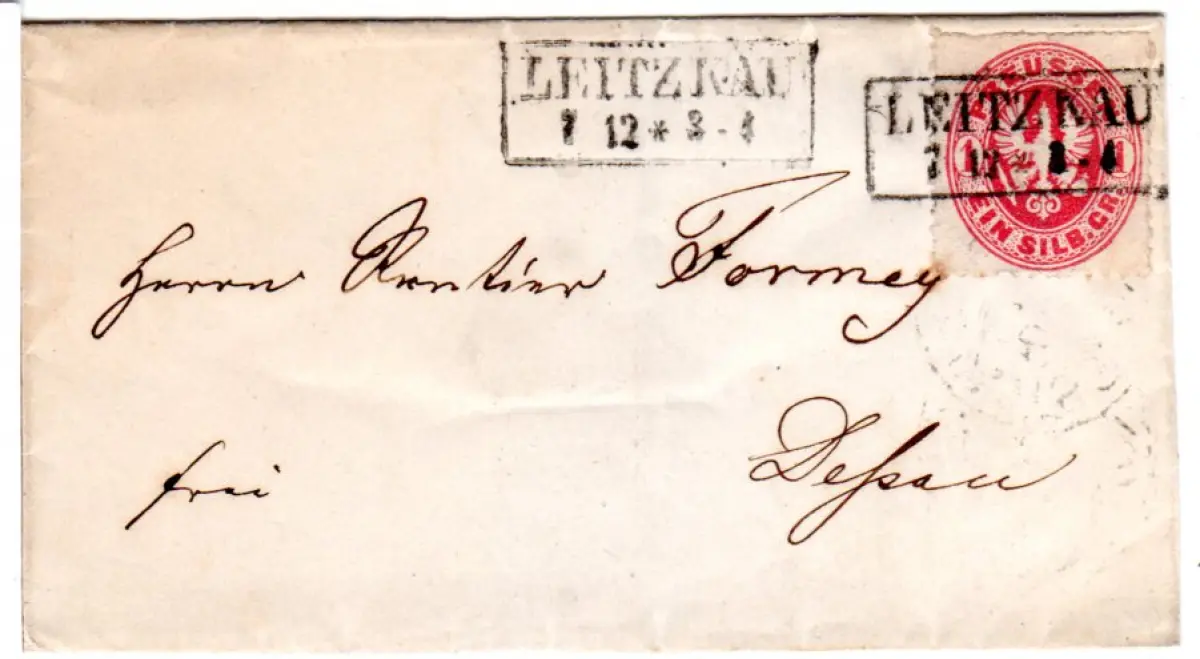 LEITZKAU
7 12 * 3 - 4
LEITZKAU
7 12 * 3 - 4
PREUSSEN
1 1
EIN SILB. GR.
Herrn Rentier Formey
frei
Deßau